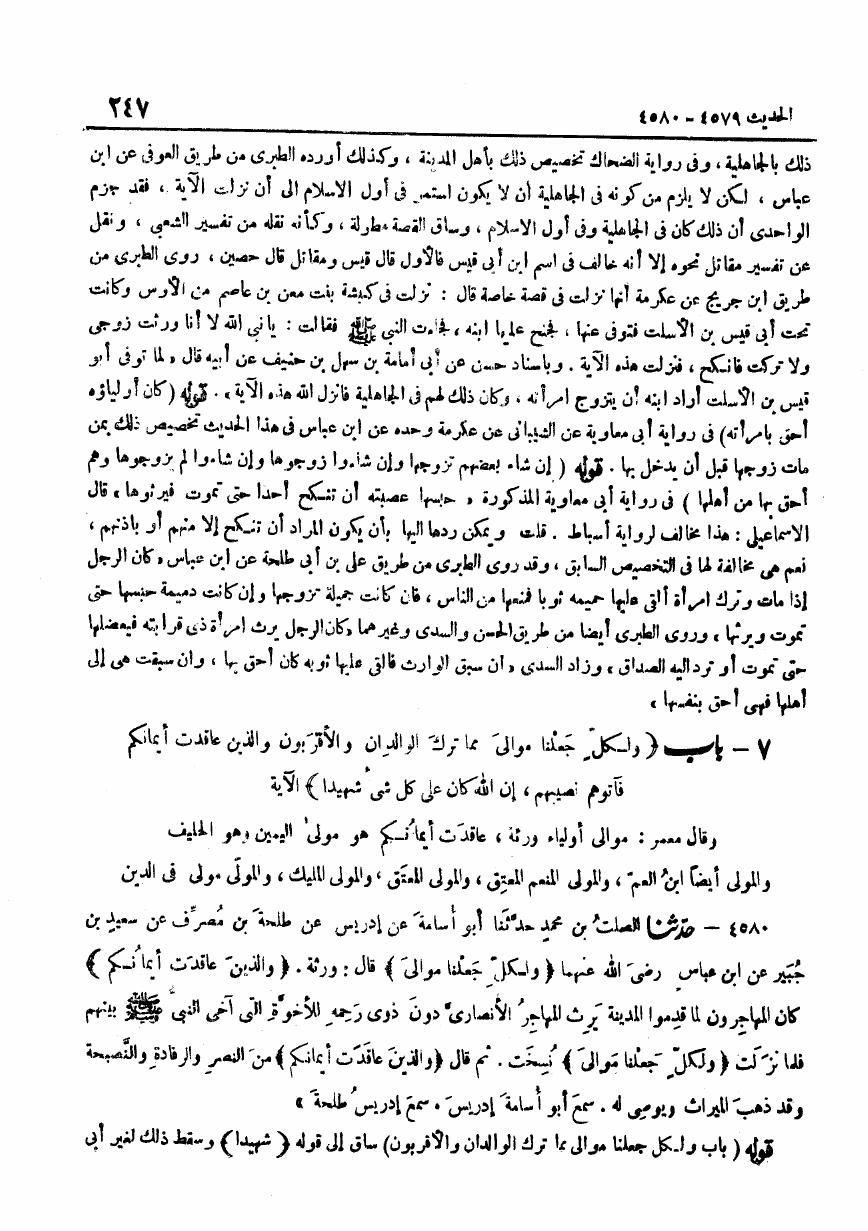 الحديث ٤٥٧٩ - ٤٥٨٠ ٢٤٧
ذلك بالجاهلية ، وفى رواية الضحاك تخصيص ذلك بأهل المدينة ، وكذلك أورده الطبرى من طريق العوفى عن ابن
عباس ، لكن لا يلزم من كونه فى الجاهلية أن لا يكون استمر فى أول الاسلام الى أن نزلت الآية ، فقد جزم
الواحدى أن ذلك كان فى الجاهلية وفى أول الاسلام ، وساق القصة مطولة ، وكأنه نقله من تفسير الشعبى ، ونقل
عن تفسير مقاتل نحوه إلا أنه خالف فى اسم ابن أبى قيس فالأول قال قيس ومقاتل قال حصين ، روى الطبرى من
طريق ابن جريج عن عكرمة أنها نزلت فى قصة خاصة قال : نزلت فى كبشة بنت معن بن عاصم من الأوس وكانت
تحت أبى قيس بن الأسلت فتوفى عنها ، فجنح عليها ابنه ، فجاءت النبى ﷺ فقالت : يا نبى الله لا أنا ورثت زوجى
ولا تركت فانكح ، فنزلت هذه الآية . وباسناد حسن عن أبى أمامة بن سهل بن حنيف عن أبيه قال « لما توفى أبو
قيس بن الأسلت أراد ابنه أن يتزوج امرأته ، وكان ذلك لهم فى الجاهلية فانزل الله هذه الآية » . قوله ( كان أولياؤه
أحق بامرأته) فى رواية أبى معاوية عن الشيبانى عن عكرمة وحده عن ابن عباس فى هذا الحديث تخصيص ذلك بمن
مات زوجها قبل أن يدخل بها . قوله ( إن شاء بعضهم تزوجها وإن شاءوا زوجوها وإن شاءوا لم يزوجوها وهم
أحق بها من أهلها ) فى رواية أبى معاوية المذكورة « حبسها عصبته أن تنكح أحدا حتى تموت فيرثوها » قال
الاسماعيلى : هذا مخالف لرواية أسباط . قلت ويمكن ردها اليها بأن يكون المراد أن تنكح إلا منهم أو باذنهم ،
نعم هى مخالفة لها فى التخصيص السابق ، وقد روى الطبرى من طريق على بن أبى طلحة عن ابن عباس « كان الرجل
إذا مات وترك امرأة ألقى عليها حميمه ثوبا فمنعها من الناس ، فان كانت جميلة تزوجها وإن كانت دميمة حبسها حتى
تموت ويرثها » وروى الطبرى أيضا من طريق الحسن والسدى وغيرهما « كان الرجل يرث امرأة ذى قرابته فيعضلها
حتى تموت أو ترد اليه الصداق » وزاد السدى « ان سبق الوارث فالقى عليها ثوبه كان أحق بها ، وان سبقت هى إلى
أهلها فهى أحق بنفسها »
٧ - باب ﴿ ولكلٍّ جَعَلْنا موالىَ مما تركَ الوالدان والأقرَبون والذين عاقدت أيمانكم
فآتوهم نصيبهم ، إن الله كان على كل شىء شهيدا ﴾ الآية
وقال معمر : موالى أولياء ورثة ، عاقدَت أيمانُكم هو مولى اليمين وهو الحليف
والمولى أيضاً ابنُ العمّ ، والمولى المنعم المعتِق ، والمولى المعتَق ، والمولى المليك ، والمولَى مولى فى الدين
٤٥٨٠ - حدّثنا الصلتُ بن محمدٍ حدَّثَنا أبو أسامةَ عن إدريس عن طلحةَ بن مُصرِّف عن سعيدِ بن
جُبَير عن ابن عباس رضىَ الله عنهما ﴿ ولكلٍّ جَعلْنا موالىَ ﴾ قال : ورثة . ﴿ والذينَ عاقدَت أيمانُكم ﴾
كان المهاجِرون لما قدِموا المدينة يَرِث المهاجرُ الأنصارىَّ دونَ ذوى رَحِمه للأخوَّةِ التى آخى النبىُّ ﷺ بينهم
فلما نزَلَت ﴿ ولكلٍّ جَعلْنا مَوالىَ ﴾ نُسِخَت . ثم قال ﴿والذينَ عاقَدَت أيمانكم ﴾ منَ النصرِ والرفادةِ والنَّصيحة
وقد ذهبَ الميراث ويوصِى له . سمعَ أبو أسامةَ إدريسَ . سمعَ إدريسُ طلحةَ »
قوله ( باب ولكل جعلنا موالى مما ترك الوالدان والأقربون) ساق إلى قوله ( شهيدا ) وسقط ذلك لغير أبى